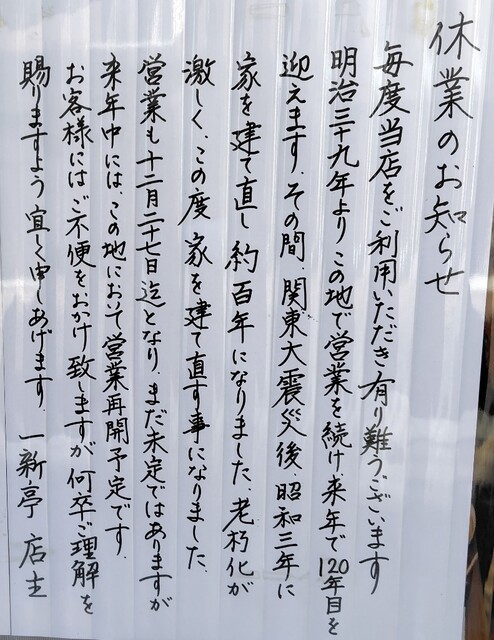 休業のお知らせ
毎度当店をご利用いただき有り難うございます
明治三十九年よりこの地で営業を続け来年で120年目を
迎えます。その間、関東大震災後、昭和三年に
家を建て直し約百年になりました。老朽化が
激しく、この度家を建て直す事になりました。
営業も十二月二十七日迄となり、まだ未定ではありますが
来年中には、この地において営業再開予定です。
お客様にはご不便をおかけ致しますが何卒ご理解を
賜りますよう宜しく申しあげます。 一新亭 店主